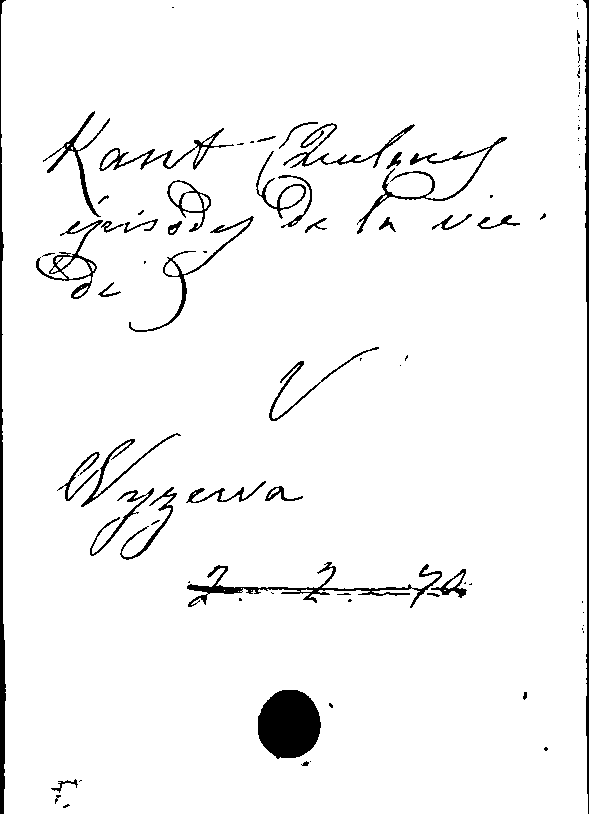 Kant Quelques
épisodes de la vie
de
V
Wyzewa
2. 2. 70